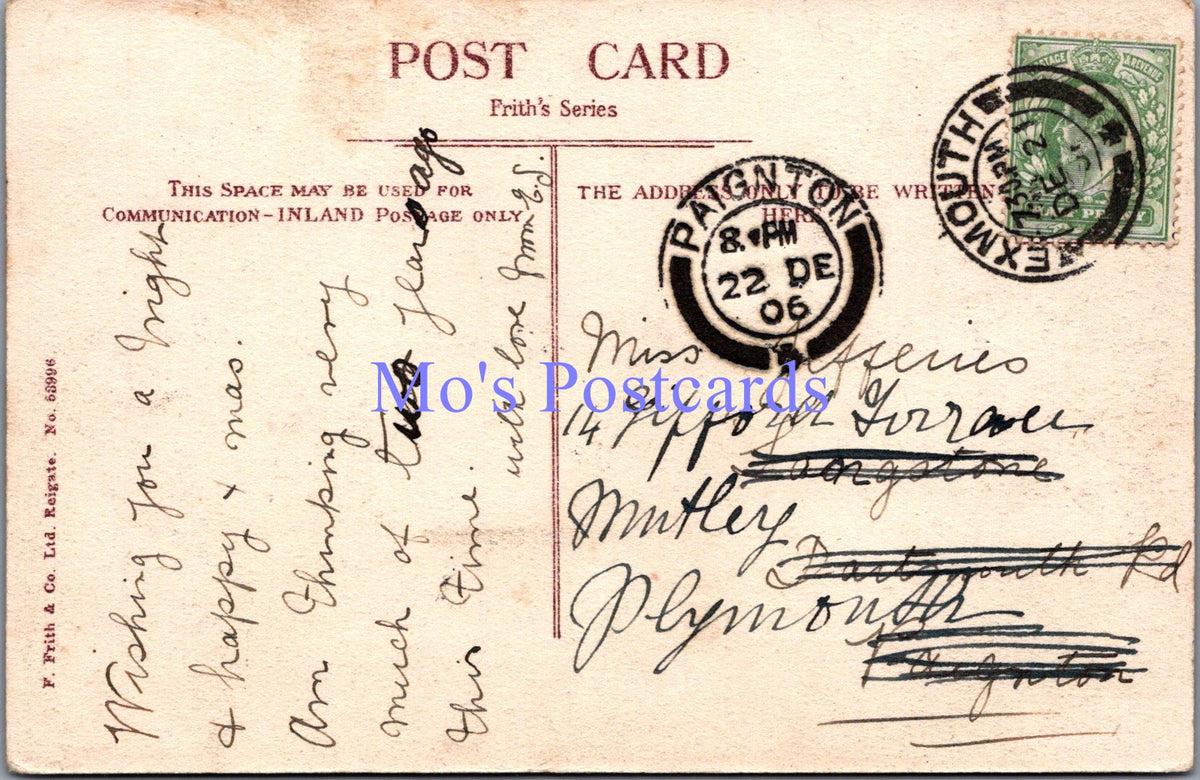 POST CARD
Frith's Series
THIS SPACE MAY BE USED FOR
COMMUNICATION-INLAND POSTAGE ONLY
THE ADDRESS ONLY TO BE WRITTEN
HERE
F. Frith & Co. Ltd. Reigate. No. 53996
Wishing you a bright
& happy x mas.
Am thinking very
much of two years ago
this time.
with love from Ed.
PAIGNTON
8. PM
22 DE
06
EXMOUTH
7.30PM
DE 21
POSTAGE & REVENUE
Miss Jefferies
14 Gifford Terrace
Langstone
Mutley
Dartmouth Rd
Plymouth
Paignton
Mo's Postcards